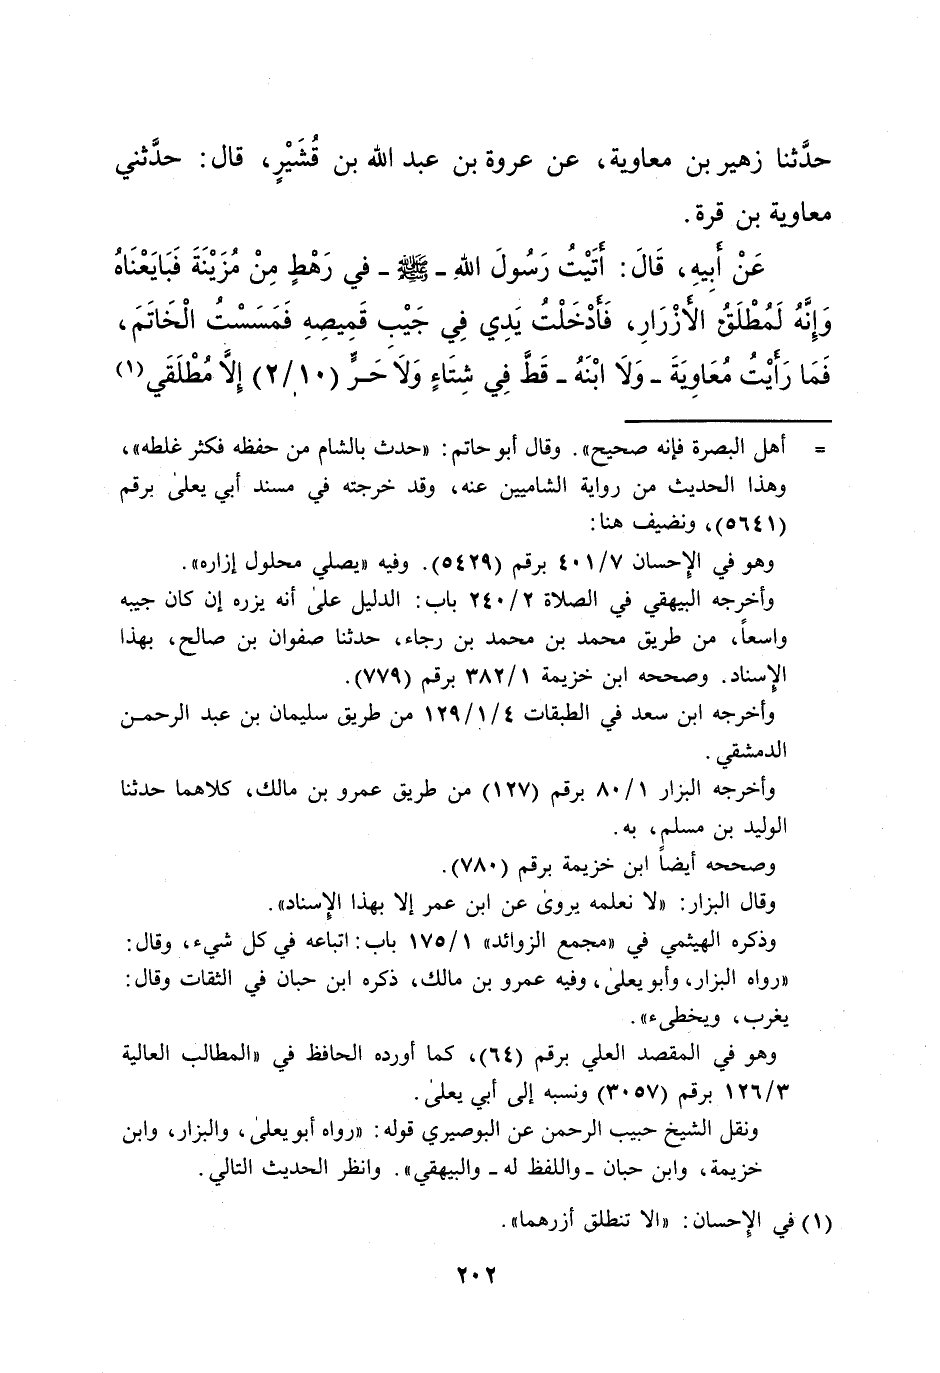 حدَّثنا زهير بن معاوية، عن عروة بن عبد الله بن قُشَيْرٍ، قال: حدَّثني
معاوية بن قرة.
عَنْ أَبِيهِ، قَالَ: أَتَيْتُ رَسُولَ اللهِ ـ ﷺ ـ في رَهْطٍ مِنْ مُزَيْنَةَ فَبَايَعْنَاهُ
وَإِنَّهُ لَمُطْلَقُ الْأَزْرَارِ، فَأَدْخَلْتُ يَدِي فِي جَيْبِ قَمِيصِهِ فَمَسَسْتُ الْخَاتَمَ،
فَمَا رَأَيْتُ مُعَاوِيَةَ ـ وَلَا ابْنَهُ ـ قَطَّ فِي شِتَاءٍ وَلَا حَرٍّ (٢/١٠) إِلَّا مُطْلَقَي (١)
= أهل البصرة فإنه صحيح». وقال أبو حاتم: «حدث بالشام من حفظه فكثر غلطه»،
وهذا الحديث من رواية الشاميين عنه، وقد خرجته في مسند أبي يعلىٰ برقم
(٥٦٤١)، ونضيف هنا:
وهو في الإحسان ٤٠١/٧ برقم (٥٤٢٩). وفيه «يصلي محلول إزاره».
وأخرجه البيهقي في الصلاة ٢٤٠/٢ باب: الدليل علىٰ أنه يزره إن كان جيبه
واسعاً، من طريق محمد بن محمد بن رجاء، حدثنا صفوان بن صالح، بهذا
الإسناد. وصححه ابن خزيمة ٣٨٢/١ برقم (٧٧٩).
وأخرجه ابن سعد في الطبقات ١٢٩/١/٤ من طريق سليمان بن عبد الرحمن
الدمشقي.
وأخرجه البزار ٨٠/١ برقم (١٢٧) من طريق عمرو بن مالك، كلاهما حدثنا
الوليد بن مسلم، به.
وصححه أيضاً ابن خزيمة برقم (٧٨٠).
وقال البزار: «لا نعلمه يروىٰ عن ابن عمر إلا بهذا الإسناد».
وذكره الهيثمي في «مجمع الزوائد» ١٧٥/١ باب: اتباعه في كل شيء، وقال:
«رواه البزار، وأبو يعلىٰ، وفيه عمرو بن مالك، ذكره ابن حبان في الثقات وقال:
يغرب، ويخطىء».
وهو في المقصد العلي برقم (٦٤)، كما أورده الحافظ في «المطالب العالية
١٢٦/٣ برقم (٣٠٥٧) ونسبه إلى أبي يعلىٰ.
ونقل الشيخ حبيب الرحمن عن البوصيري قوله: «رواه أبو يعلىٰ، والبزار، وابن
خزيمة، وابن حبان ـ واللفظ له ـ والبيهقي». وانظر الحديث التالي.
(١) في الإحسان: «الا تنطلق أزرهما».
٢٠٢